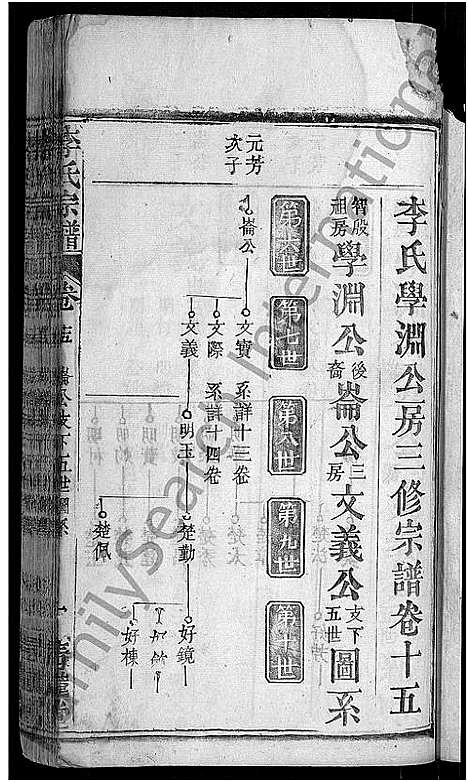 李氏學淵公房三修宗譜卷十五
智殷祖房學淵公後裔崙公三房文義公支下五世圖系
第六世
第七世
第八世
第九世
第十世
元芳次子
崙公
文寶 系詳十三卷
文際 系詳十四卷
文義
明玉
楚勤
楚佩
好鏡
好棟
李氏宗譜
卷
FamilySearch International